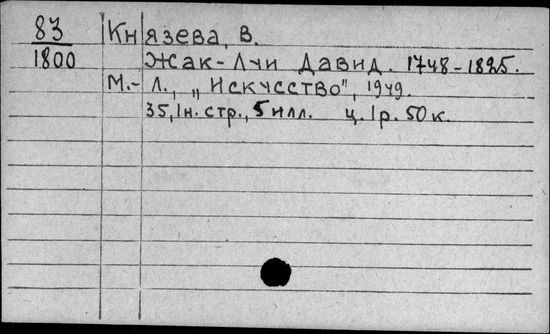 83 Князева, В.
1800 Жак-Луи Давид. 1748-1825.
М.-Л., „Искусство", 1949.
35, 1н. стр., 5 илл. ц. 1р. 50 к.